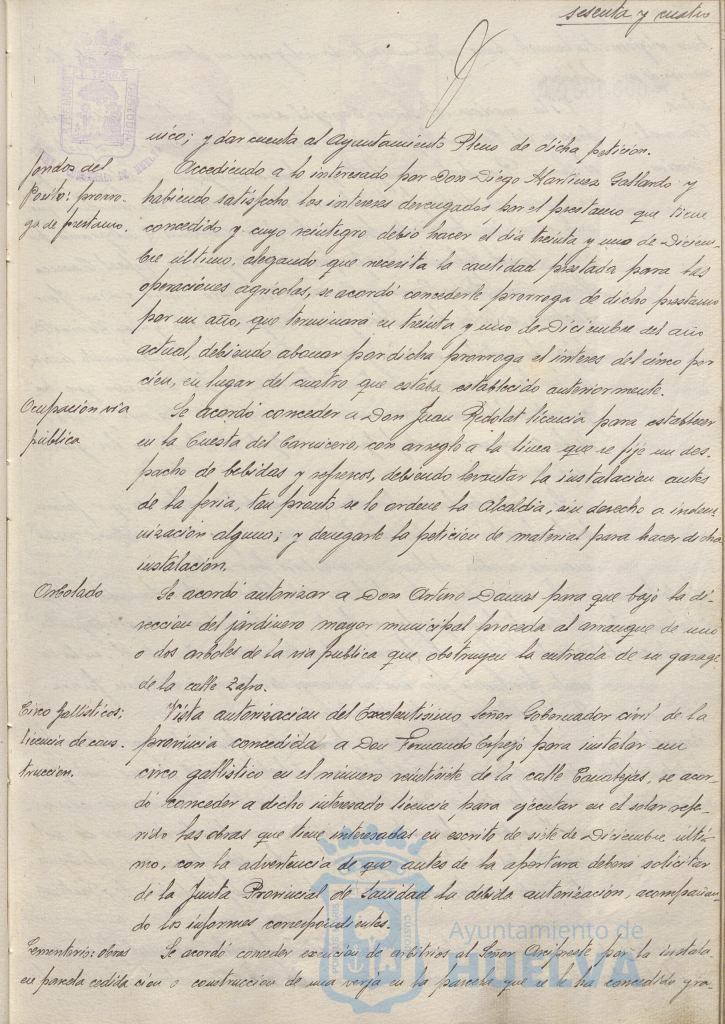 sesenta y cuatro
nico; y dar cuenta al Ayuntamiento Pleno de dicha peticion.
Fondos del
Posito: prorro-
ga de prestamo.
Accediendo a lo interesado por Don Diego Martinez Gallardo y
habiendo satisfecho los intereses devengados por el prestamo que tiene
concedido y cuyo reintegro debio hacer el dia treinta y uno de Diciem-
bre último, alegando que necesita la cantidad prestada para las
operaciones agricolas, se acordó concederle prorroga de dicho prestamo
por un año, que terminará en treinta y uno de Diciembre del año
actual, debiendo abonar por dicha prorroga el interes del cinco por
cien, en lugar del cuatro que estaba establecido anteriormente.
Ocupación via
pública
Se acordó conceder a Don Juan Redolat licencia para establecer
en la Cuesta del Carnicero, con arreglo a la linea que se fije un des-
pacho de bebidas y refrescos, debiendo levantar la instalacion antes
de la feria, tan pronto se lo ordene la Alcaldia, sin derecho a indem-
nización alguna; y denegarle la petición de material para hacer dicha
instalacion.
Arbolado
Se acordó autorizar a Don Arturo para que bajo la di-
reccion del jardinero mayor municipal proceda al arranque de uno
o dos arboles de la via publica que obstruyen la entrada de su garage
de la calle Zafra.
Circo Gallisticos;
licencia de cons-
truccion.
Vista autorizacion del Excelentisimo Señor Gobernador civil de la
provincia concedida a Don Fernando Espejo para instalar un
circo gallistico en el número veintisiete de la calle Canalejas, se acor-
dó conceder a dicho interesado licencia para ejecutar en el solar refe-
rido las obras que tiene interesadas en escrito de siete de Diciembre últi-
mo, con la advertencia de que antes de la apertura deberá solicitar
de la Junta Provincial de Sanidad la debida autorizacion, acompañan-
do los informes correspondientes.
Cementerio: obras
en parcela cedida
Se acordó conceder exencion de arbitrios al Señor Arcipreste por la instala
cion o construccion de una verja en la parcela que se le ha concedido gra-
Ayuntamiento de
HUELVA